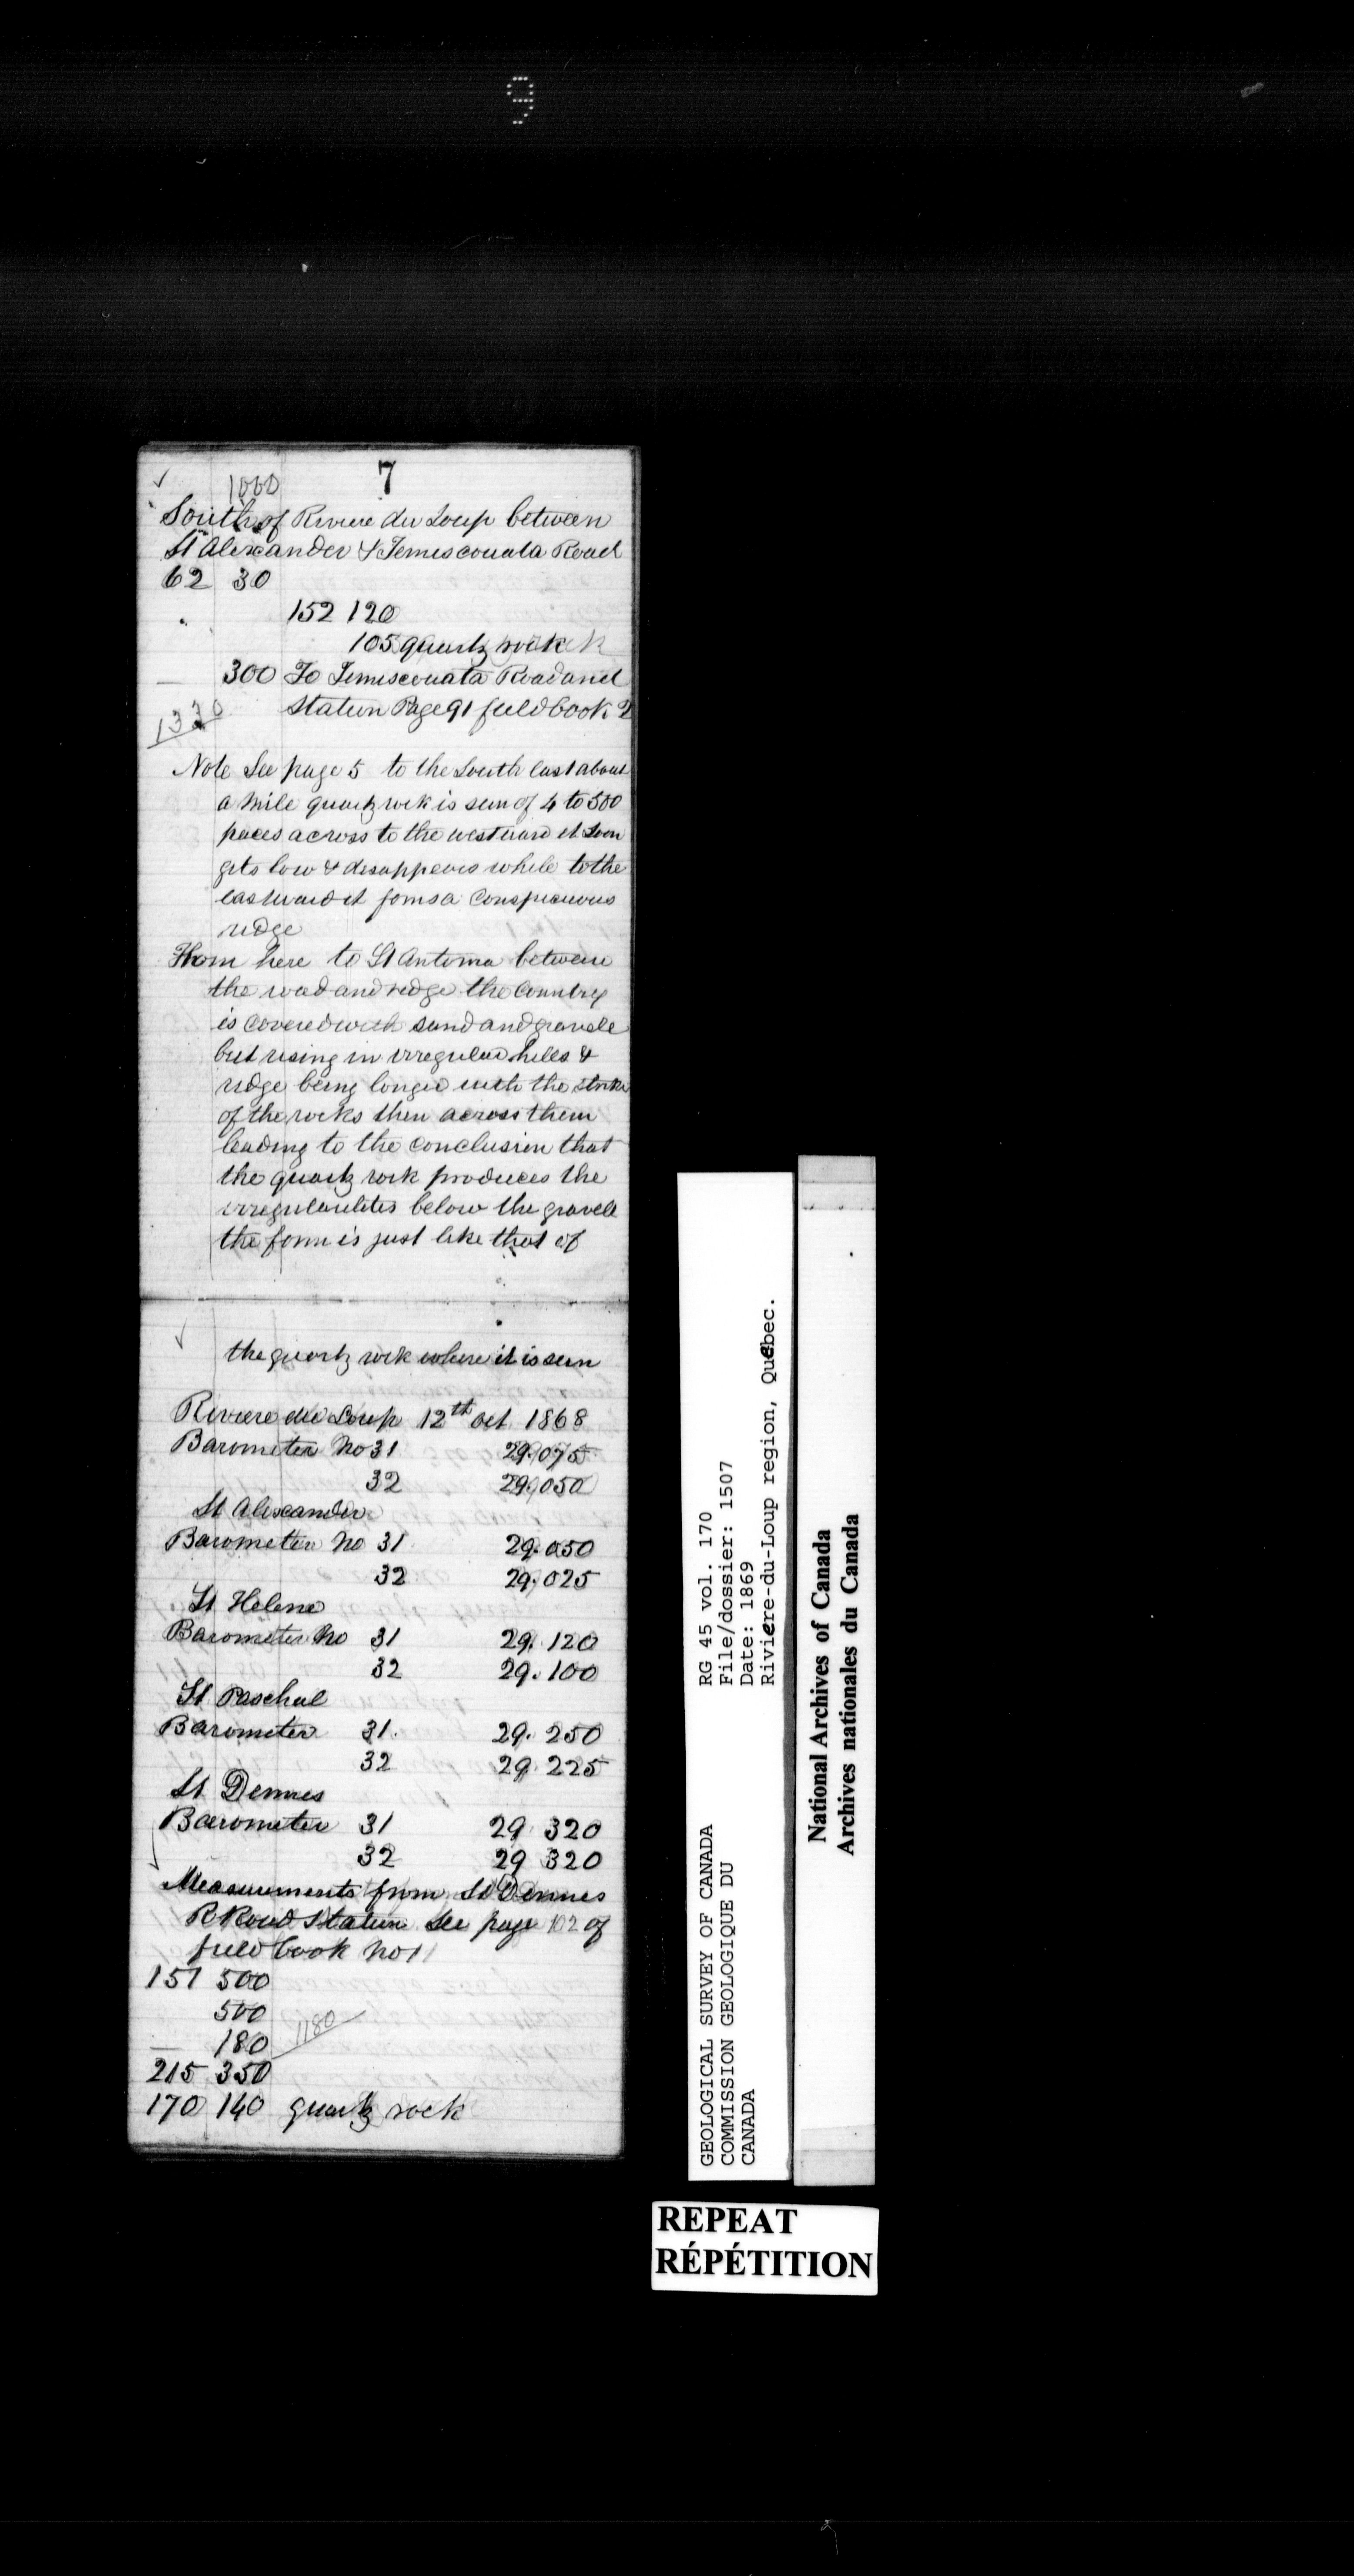 9
7
1000
South of Riviere du Loup between
St Alexander & Temiscouata Road
62 30
152 120
105 quartz rock
300 To Temiscouata Road and
1330
station Page 91 field book 2
Note See page 5 to the South east about
a mile quartz rock is seen of 4 to 500
paces across to the westward it soon
gets low & disappears while to the
eastward it foms a Conspicuous
ridge
From here to St Antonia between
the road and ridge the Country
is covered with sand and gravele
but rising in irregular hills &
ridge being longer with the strike
of the rocks then across them
leading to the conclusion that
the quartz rock produces the
irregularities below the gravele
the form is just like that of
the quartz rock where it is seen
Riviere du Loup 12th oct 1868
Barometer No 31 29.075
32 29.050
St Alexander
Barometer No 31 29.050
32 29.025
St Helene
Barometer No 31 29.120
32 29.100
St Paschal
Barometer 31. 29.250
32 29 225
St Dennes
Barometer 31 29 320
32 29 320
Measurements from St Dennes
R Road Station See page 102 of
field book No 1
157 500
500
180 1180
215 350
170 140 quartz rock
GEOLOGICAL SURVEY OF CANADA
COMMISSION GEOLOGIQUE DU
CANADA
RG 45 vol. 170
File/dossier: 1507
Date: 1869
Riviere-du-Loup region, Quebec.
National Archives of Canada
Archives nationales du Canada
REPEAT
RÉPÉTITION